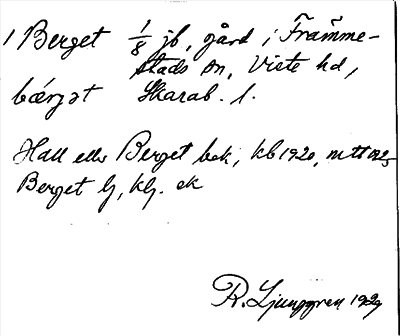 1 Berget 1/8 jb, gård i Främme-
stads sn, Viste hd,
bærjət Skarab. l.
Hall eller Berget bek, kb 1920, mtl 1925
Berget lj, klj. ek
R. Ljunggren 1929